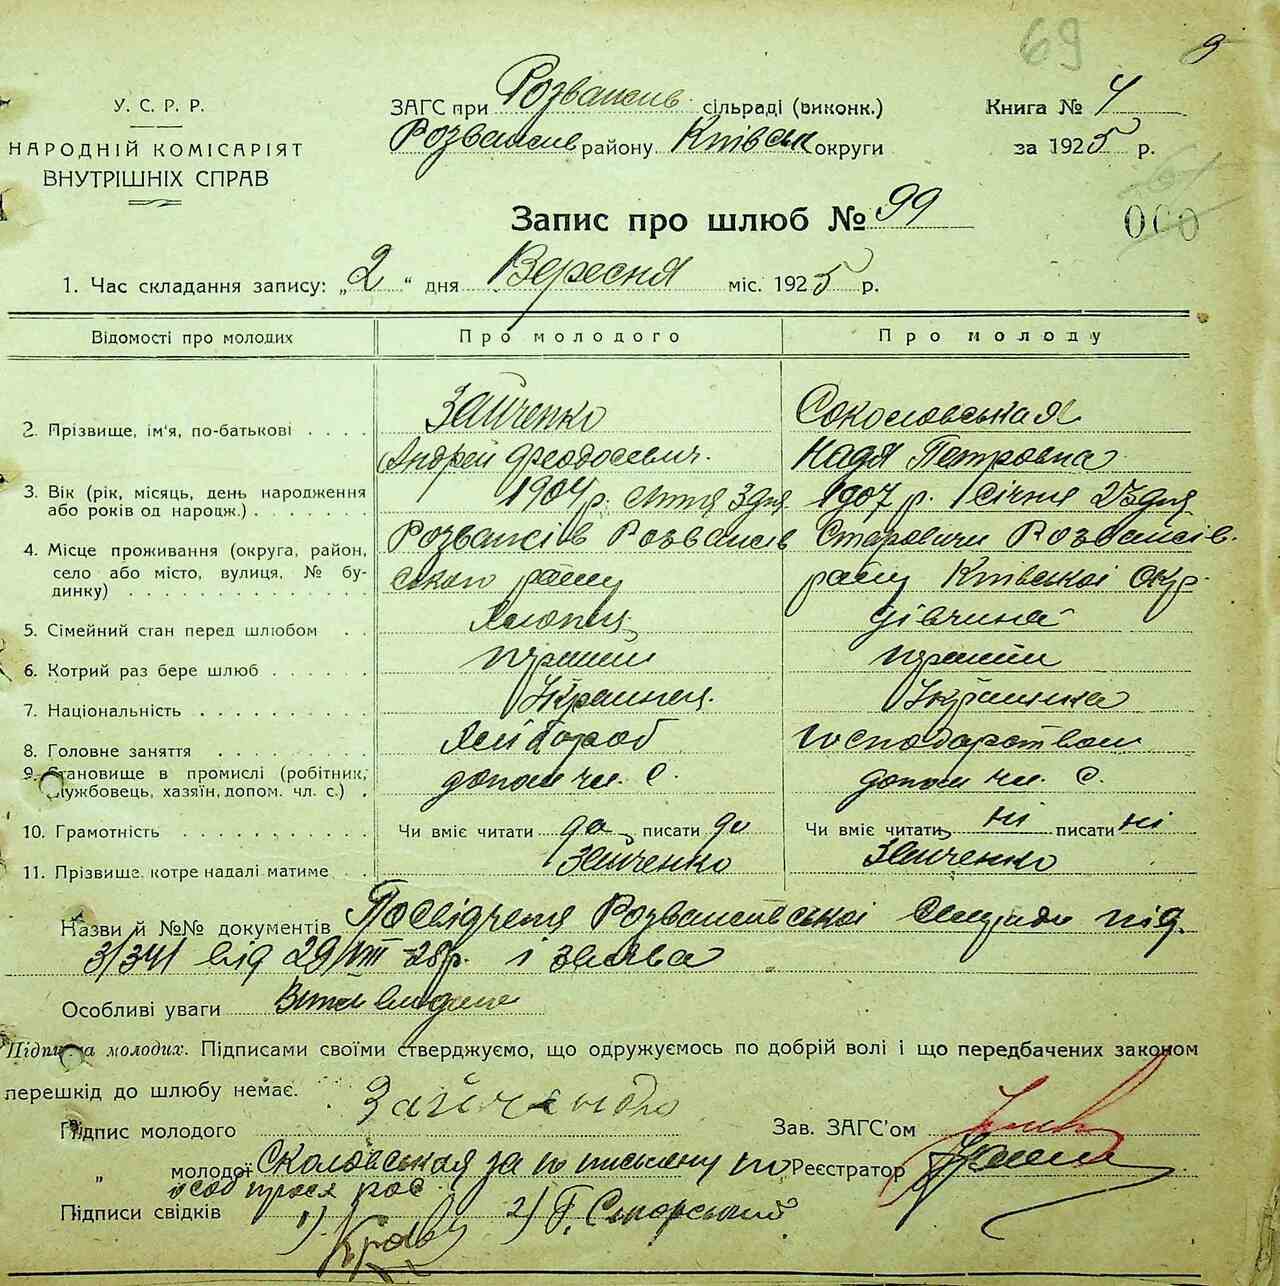 69
9
У. С. Р. Р.
НАРОДНІЙ КОМІСАРІЯТ
ВНУТРІШНІХ СПРАВ
ЗАГС при Розважив сільраді (виконк.)
Розважив району Київськ округи
Книга № 4
за 1925 р.
000
Запис про шлюб № 99
1. Час складання запису: „2" дня Вересня міс. 1925 р.
Відомості про молодих Про молодого Про молоду
2. Прізвище, ім'я, по-батькові . . . . Зайченко Андрей Феодосевич. Сокословськая Надя Петровна
3. Вік (рік, місяць, день народження або років од народж.) . . . . . . . 1904 р. 3 дня 1907 р. Січня 23 дня
4. Місце проживання (округа, район, село або місто, вулиця, № будинку) . . . . . . . . . . Розважів Розважів ського раену Старовичи Розважів. раену Київської Окр.
5. Сімейний стан перед шлюбом . . Хлопец дівчина
6. Котрий раз бере шлюб . . . . . .
7. Національність . . . . . . . . . . Українец. Українка
8. Головне заняття . . . . . . . . Хлібороб господарством
9. Становище в промислі (робітник, службовець, хазяїн, допом. чл. с.) . допом чл. с. допом чл. с.
10. Грамотність . . . . . . . . . . Чи вміє читати да писати да Чи вміє читати ні писати ні
11. Прізвище, котре надалі матиме . Зайченко Зайченко
Назви й №№ документів Посвідченя Розважевської під
3/341 від 29/VIII-25р. і заява
Особливі уваги
Підписка молодих. Підписами своїми стверджуємо, що одружуємось по добрій волі і що передбачених законом
перешкід до шлюбу немає.
Підпис молодого Зайченко Зав. ЗАГС'ом
„ молодої Сколовськая за Реєстратор
Підписи свідків 1) 2) Г.